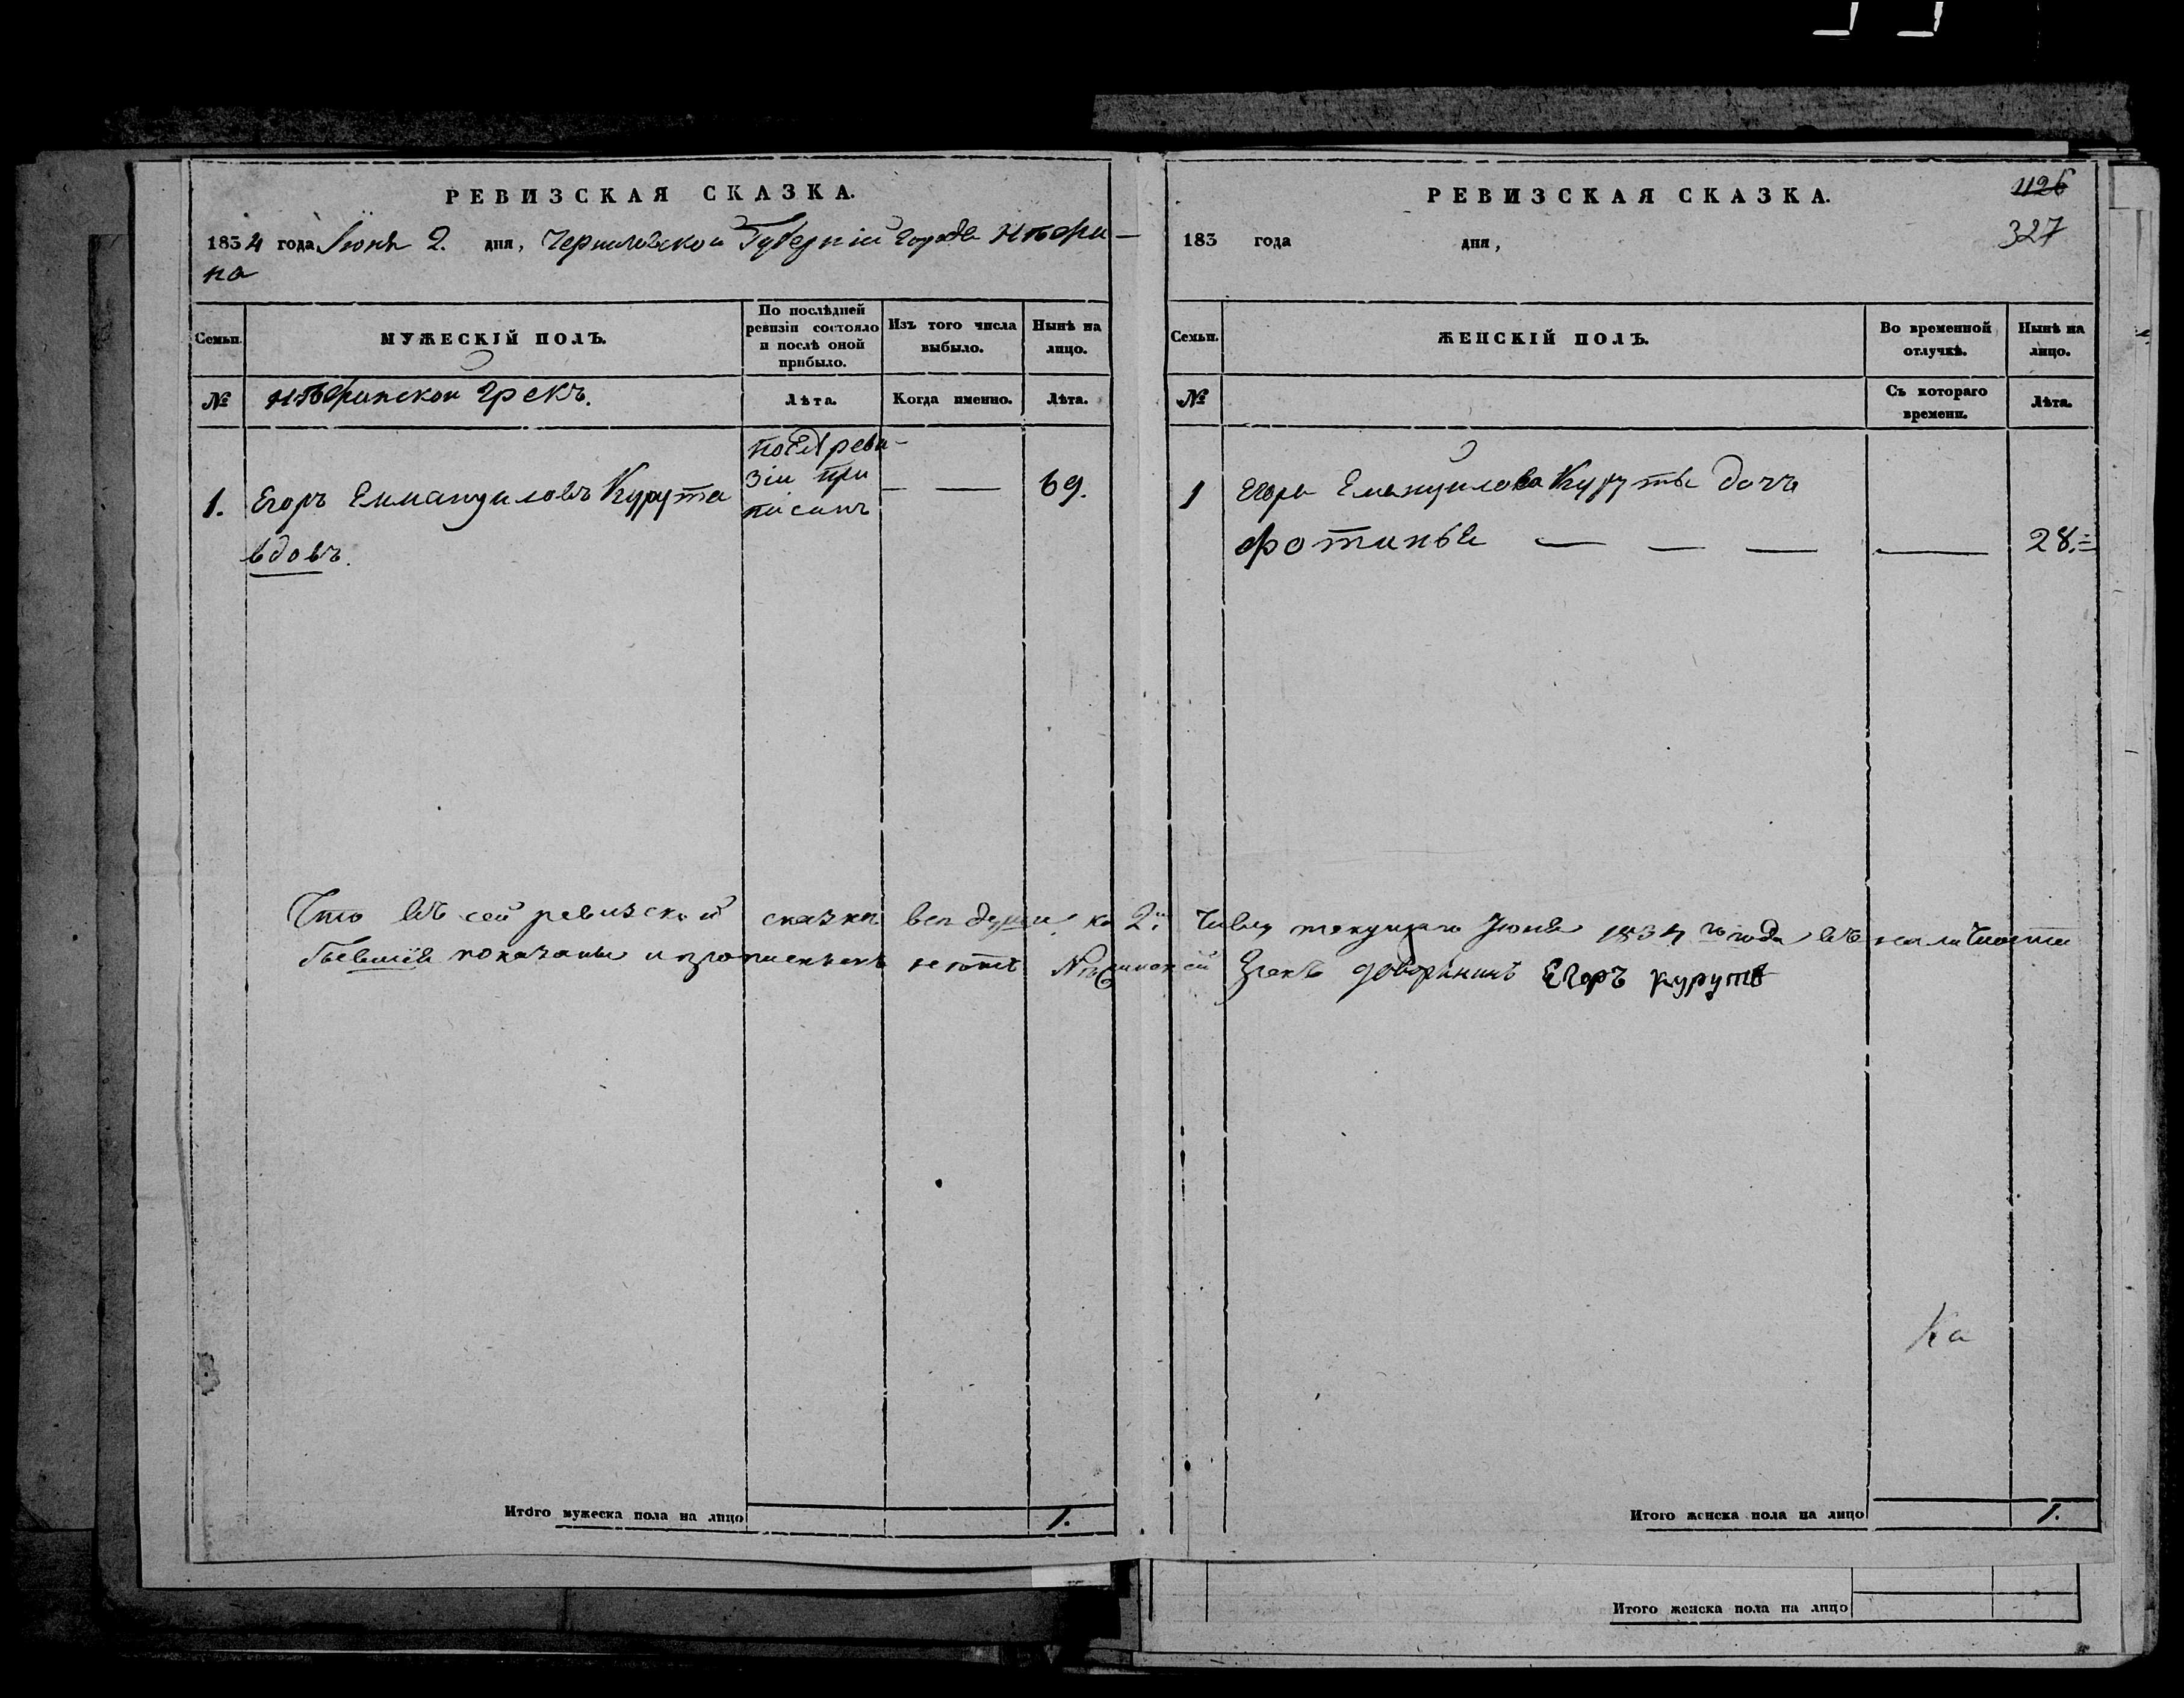 РЕВИЗСКАЯ СКАЗКА.
1834 года Іюня 2. дня, Черниговской Губерніи города Нѣжи-
на
Семьи.
МУЖЕСКІЙ ПОЛЪ.
По послѣдней ревизіи состояло и послѣ оной прибыло.
Изъ того числа выбыло.
Нынѣ на лицо.
№
Нѣжинской Грекъ.
Лѣта.
Когда именно.
Лѣта.
1.
Егоръ Еммануиловъ Курута
вдовъ.
реви-
зіи при
писанъ
— —
69.
Итого мужеска пола на лицо
1.
РЕВИЗСКАЯ СКАЗКА.
1126
327
183 года дня,
Семьи.
ЖЕНСКІЙ ПОЛЪ.
Во временной отлучкѣ.
Нынѣ на лицо.
№
Съ котораго времени.
Лѣта.
1
Егора Емануилова Куруты дочь
Фотинья — — —
—
28.
Что въ сей ревизской сказки всѣ души ко 2му числу текущаго Іюня 1834го года въ наличности
бывшія показаны и прописныхъ нетъ Нѣжинской Грекъ дворянинъ Егоръ Курута
Ка
Итого женска пола на лицо
1.
Итого женска пола на лицо